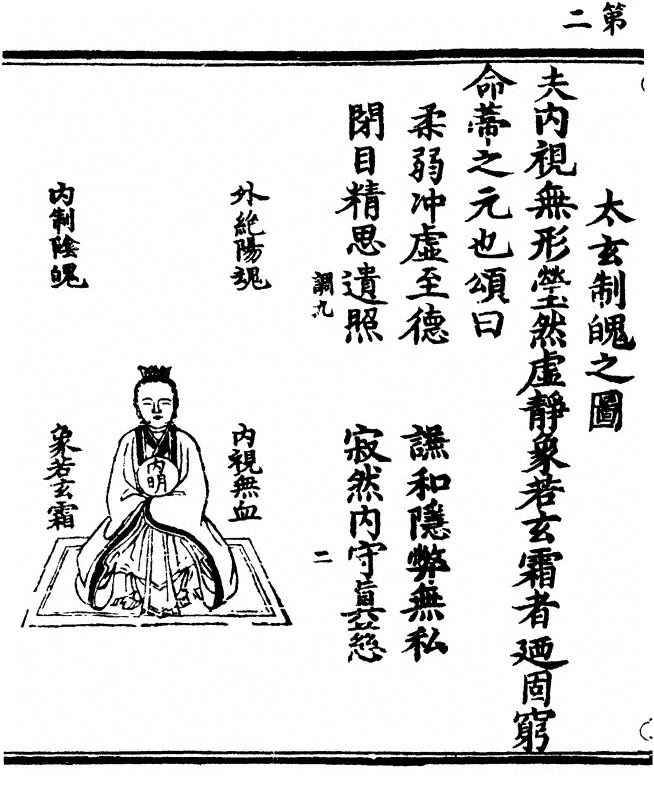 第二
太玄制魄之圖
夫內視無形瑩然虛靜象若玄霜者廼固窮
命蔕之元也頌曰
柔弱冲虛至德　謙和隱弊無私
閉目精思遺照　寂然內守眞慈
調九　二
外絶陽魂
內視無血
內明
內制陰魄
象若玄霜